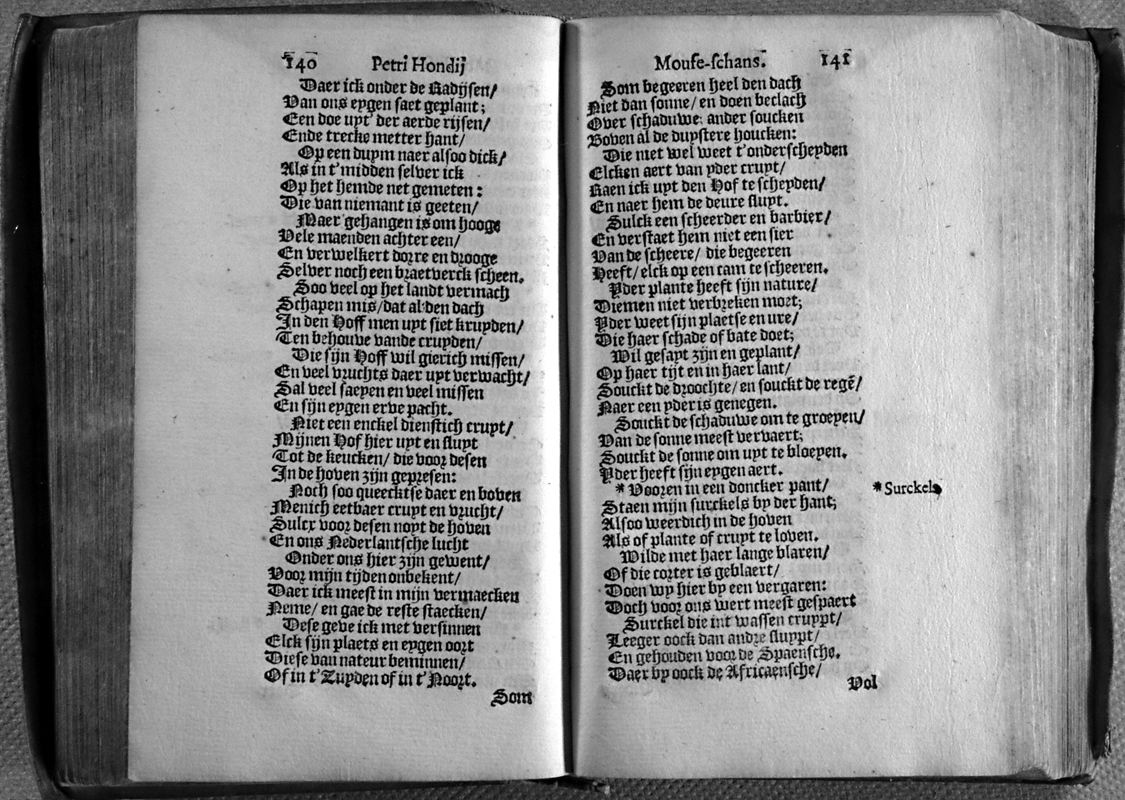 140 Petri Hondij
Daer ick onder de Radijsen/
Van ons eygen saet geplant;
Een doe uyt der aerde rijsen/
Ende trecke metter hant/
Op een duym naer alsoo dick/
Als in t'midden selver ick
Op het hemde net gemeten:
Die van niemant is geeten/
Maer gehangen is om hooge
Vele maenden achter een/
En verwelkert dorre en drooge
Selver noch een braetverck scheen.
Soo veel op het landt vermach
Schapen mis/dat al den dach
In den Hoff men uyt siet kruyden/
Ten behouve vande cruyden/
Die sijn Hoff wil gierich missen/
En veel vruchts daer uyt verwacht/
Sal veel saeyen en veel missen
En sijn eygen erve pacht.
Niet een enckel dienstich cruyt/
Mijnen Hof hier uyt en sluyt
Tot de keucken/ die voor desen
In de hoven zijn gepresen:
Noch soo queecktse daer en boven
Menich eetbaer cruyt en vrucht/
Sulcx voor desen noyt de hoven
En ons Nederlantsche lucht
Onder ons hier zijn gewent/
Voor mijn tijden onbekent/
Daer ick meest in mijn vermaecken
Neme/ en gae de reste staecken/
Dese geve ick met versinnen
Elck sijn plaets en eygen oort
Diese van nateur beminnen/
Of in t'Zuyden of in t'Noort.
Som
Mouse-schans. 141
Som begeeren heel den dach
Niet dan sonne/ en doen beclach
Over schaduwe: ander soucken
Boven al de duystere houcken:
Die niet wel weet t'onderscheyden
Elcken aert van yder cruyt/
Raen ick uyt den Hof te scheyden/
En naer hem de deure sluyt.
Sulck een scheerder en barbier/
En verstaet hem niet een sier
Van de scheere/ die begeeren
Heeft/ elck op een cam te scheeren.
Yder plante heeft sijn nature/
Diemen niet verbreken mort;
Yder weet sijn plaetse en ure/
Die haer schade of bate doet;
Wil gesayt zijn en geplant/
Op haer tijt en in haer lant/
Souckt de droochte/ en souckt de regē/
Naer een yder is genegen.
Souckt de schaduwe om te groeyen/
Van de sonne meest vervaert;
Souckt de sonne om uyt te bloeyen.
Yder heeft sijn eygen aert.
* Vooren in een doncker pant/
Staen mijn surckels by der hant;
Alsoo weerdich in de hoven
Als of plante of cruyt te loven.
Wilde met haer lange blaren/
Of die corter is geblaert/
Doen wy hier by een vergaren:
Doch voor ons wert meest gespaert
Surckel die int wassen cruypt/
Leeger oock dan andre sluypt/
En gehouden voor de Spaensche.
Daer by oock de Africaensche/
Vol
* Surckels